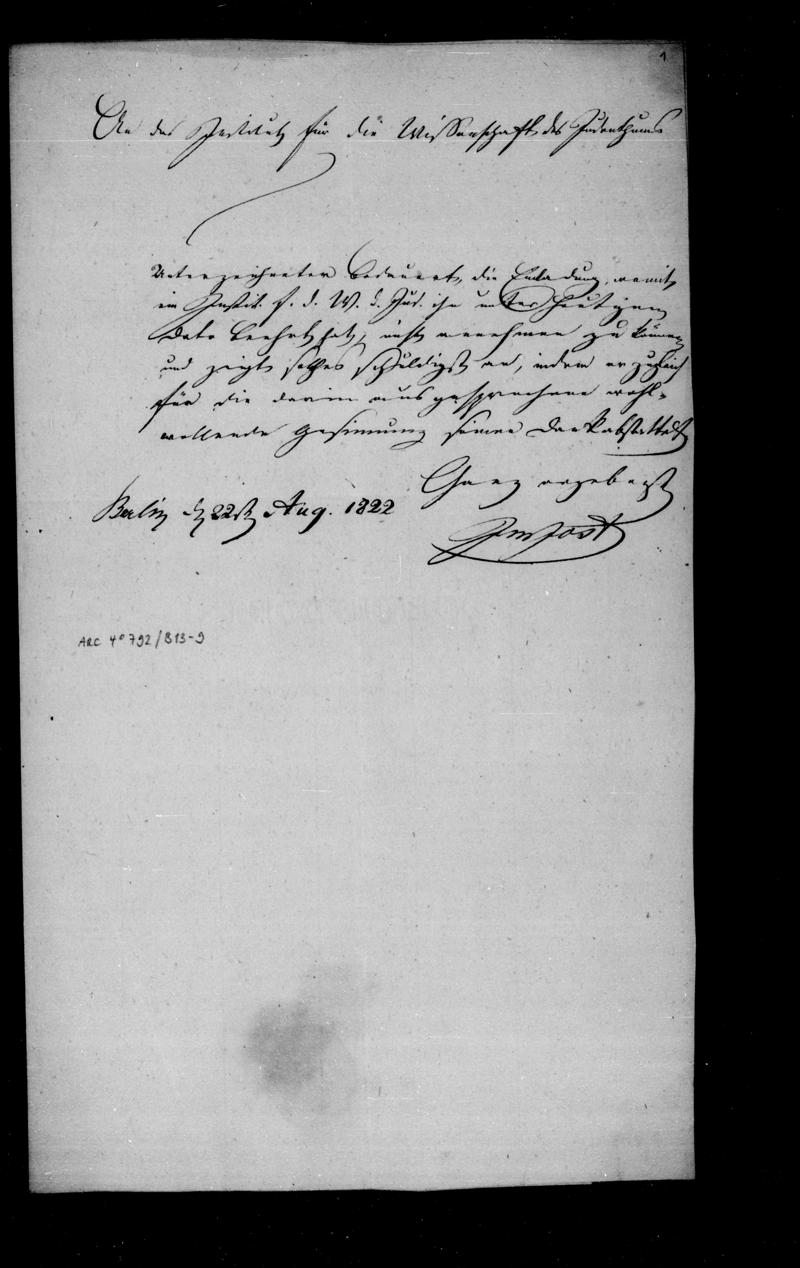 1
An das Institut für die Wissenschaft des Judenthums
Unterzeichneter bedauert, die Einladung, womit
ein Instit. f. d. W. d. Jud. ihn unter heutigem
Dato beehrt hat, nicht annehmen zu können
und zeigt solches schuldigst an, indem er zugleich
für die darin ausgesprochene wohl-
wollende Gesinnung seinen Dank abstattet
Ganz ergebenst
Berlin d 22st Aug. 1822
Jost
ARC 4° 792/B13-9